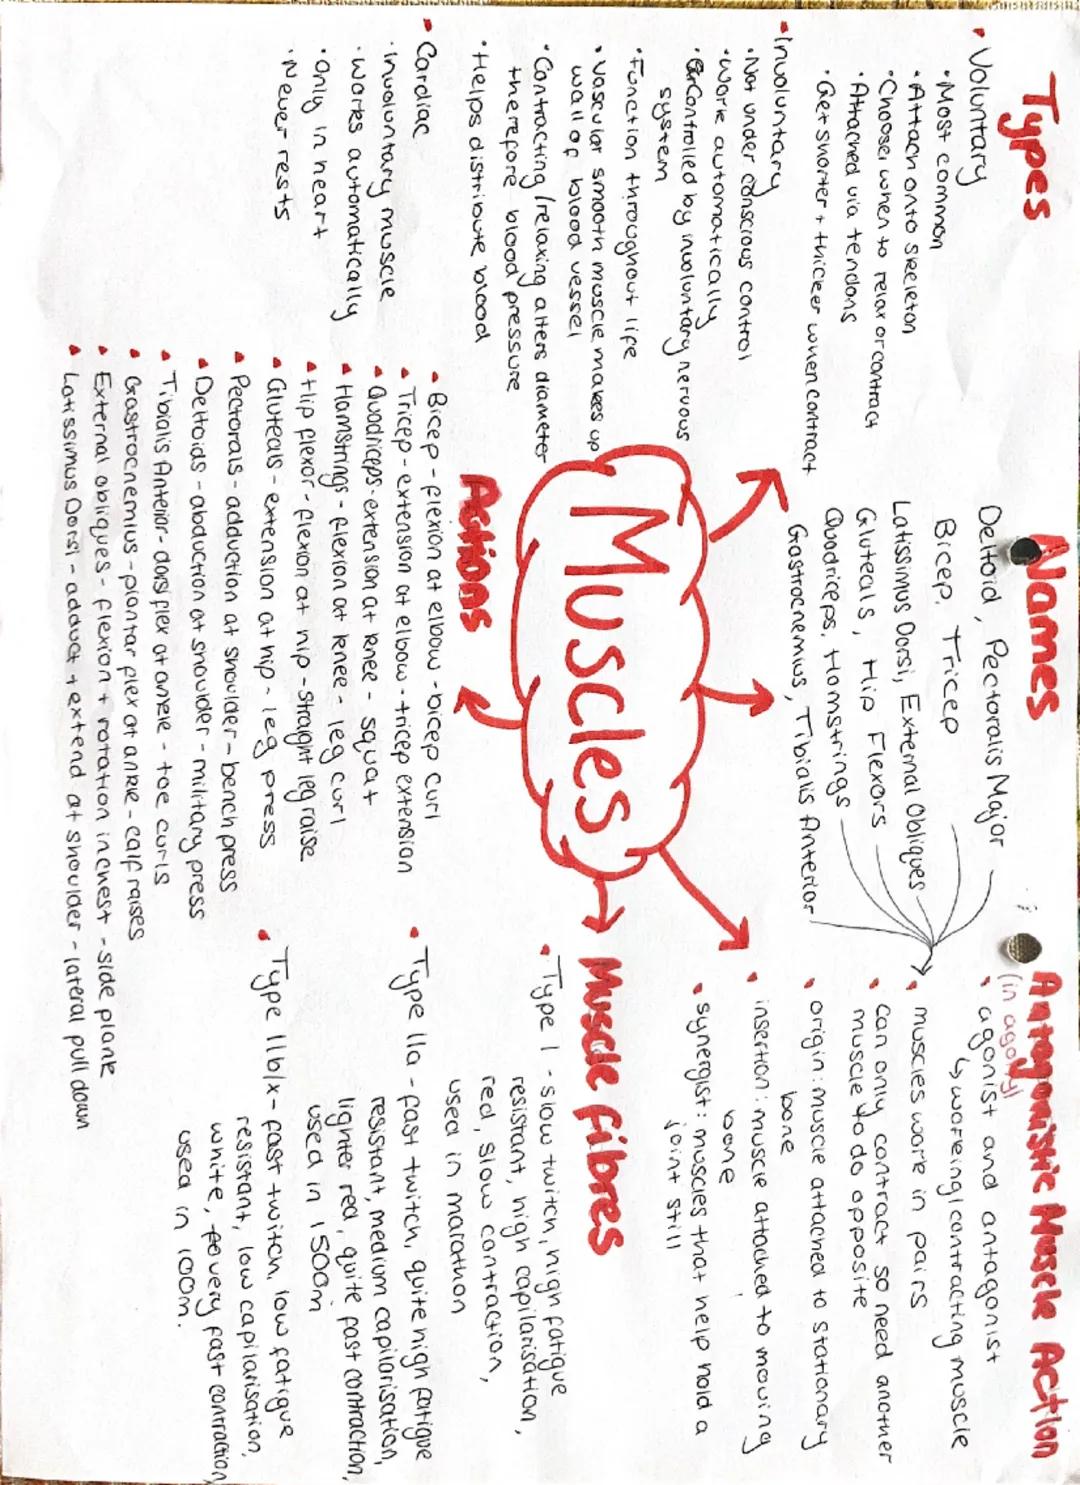 Types
Voluntary
Most common
Attach onto skeleton
Choose when to relax or contract
Attached via tendons
Get shorter + thicker when contract
Involuntary
Not under conscious control
Work automatically
Controlled by involuntary nervous
system
Function throughout life
Vascular smooth muscle makes up
wall of blood vessel
Contracting/relaxing alters diameter
therefore blood pressure
Helps distribute blood
Cardiac
Involuntary muscle
works automatically
only in heart
Never rests
Names
Deltoid, Pectoralis Major
Bicep, Tricep
Latissimus Dorsi, External Obliques
Gluteals, Hip Flexors
Quadriceps, Hamstrings
Gastrocnemius, Tibialis Anterior
Antagonistic Muscle Action
(in agony)
agonist and antagonist
↳ working/contracting muscle
muscles work in pairs
can only contract so need another
muscle to do opposite
origin: muscle attached to stationary
bone
insertion: muscle attached to moving
bone
synergist: muscles that help hold a
joint still
Muscles
Actions
Bicep - flexion at elbow - bicep curl
Tricep - extension at elbow - tricep extension
Quadriceps - extension at knee - squat
Hamstrings - flexion at knee - leg curl
Hip flexor - flexion at hip - straight leg raise
Gluteals - extension at hip - leg press
Pectorals - adduction at shoulder - bench press
Deltoids - abduction at shoulder - military press
Tibialis Anterior - dorsi flex at ankle - toe curls
Gastrocnemius - plantar flex at ankle - calf raises
External obliques - flexion + rotation in chest - side plank
Latissimus Dorsi - adduct + extend at shoulder - lateral pull down
Muscle fibres
Type 1 - slow twitch, high fatigue
resistant, high capilarisation,
red, slow contraction,
used in marathon
Type 11a - fast twitch, quite high fatigue
resistant, medium capilarisation,
lighter red, quite fast contraction,
used in 1500m
Type 11b/x - fast twitch, low fatigue
resistant, low capilarisation,
white, very fast contraction,
used in 100m.